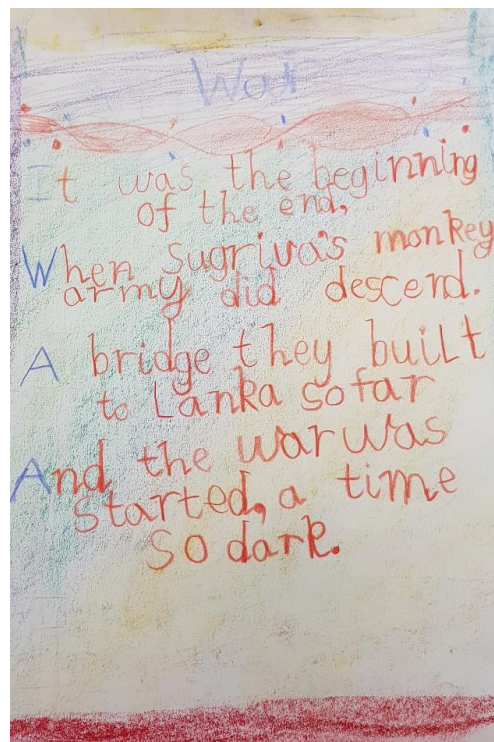 War
It was the beginning
of the end,
When Sugriva's monkey
army did descend.
A bridge they built
to Lanka so far
And the war was
started, a time
so dark.